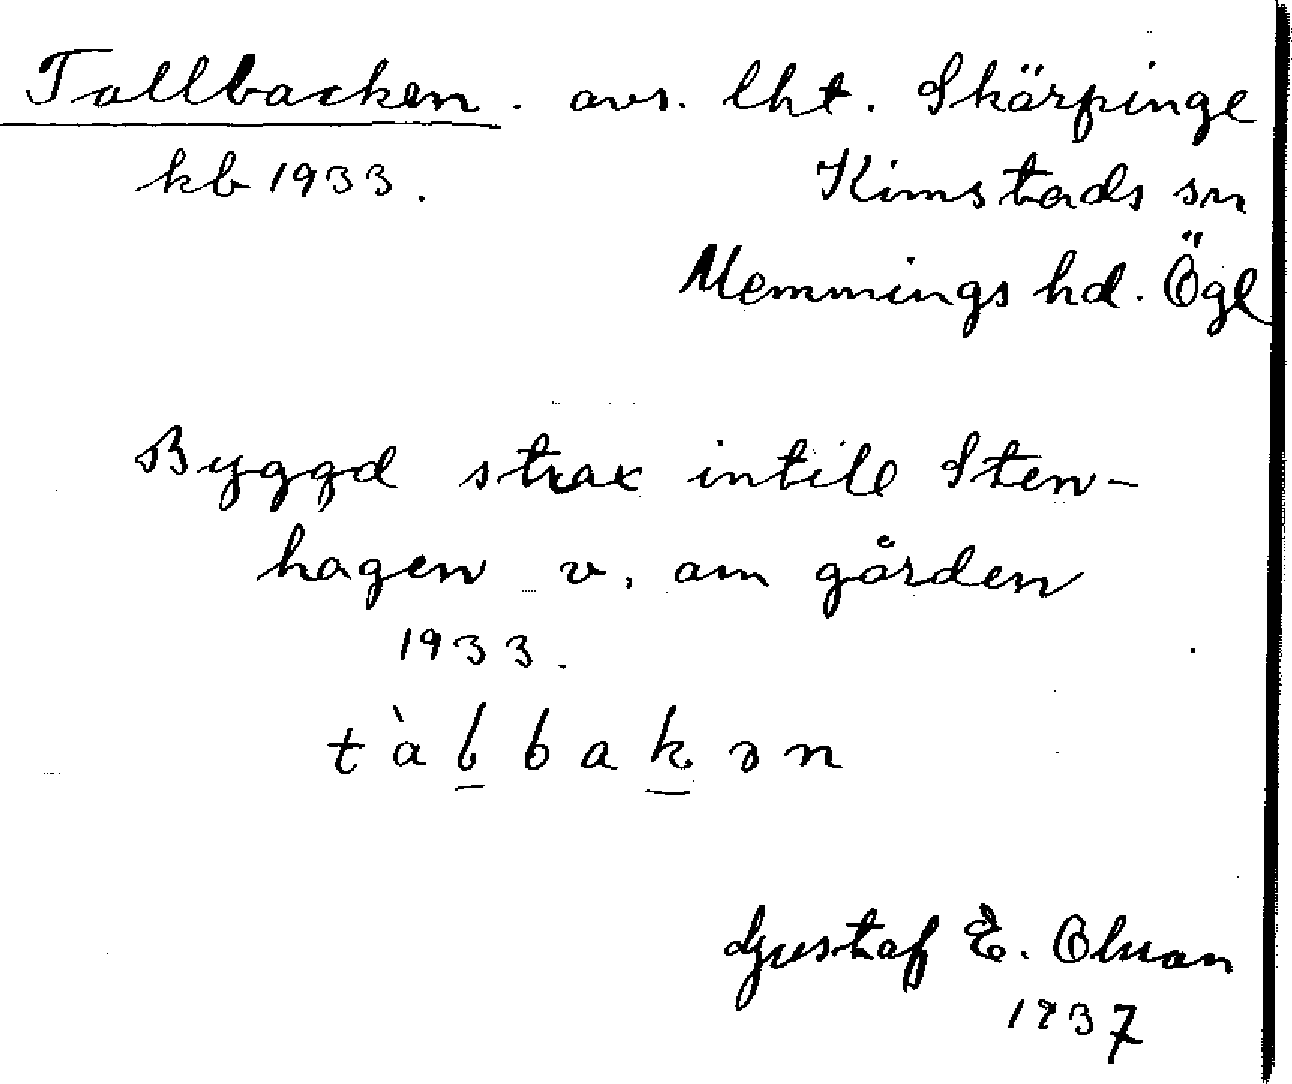 Tallbacken. avs. lht. Skärpinge
kb 1933. Kimstads sn
Memmings hd. Ögl
Byggd strax intill Sten-
hagen v. om gården
1933.
tàḻbaḵən
Gustaf E. Olsson
1937